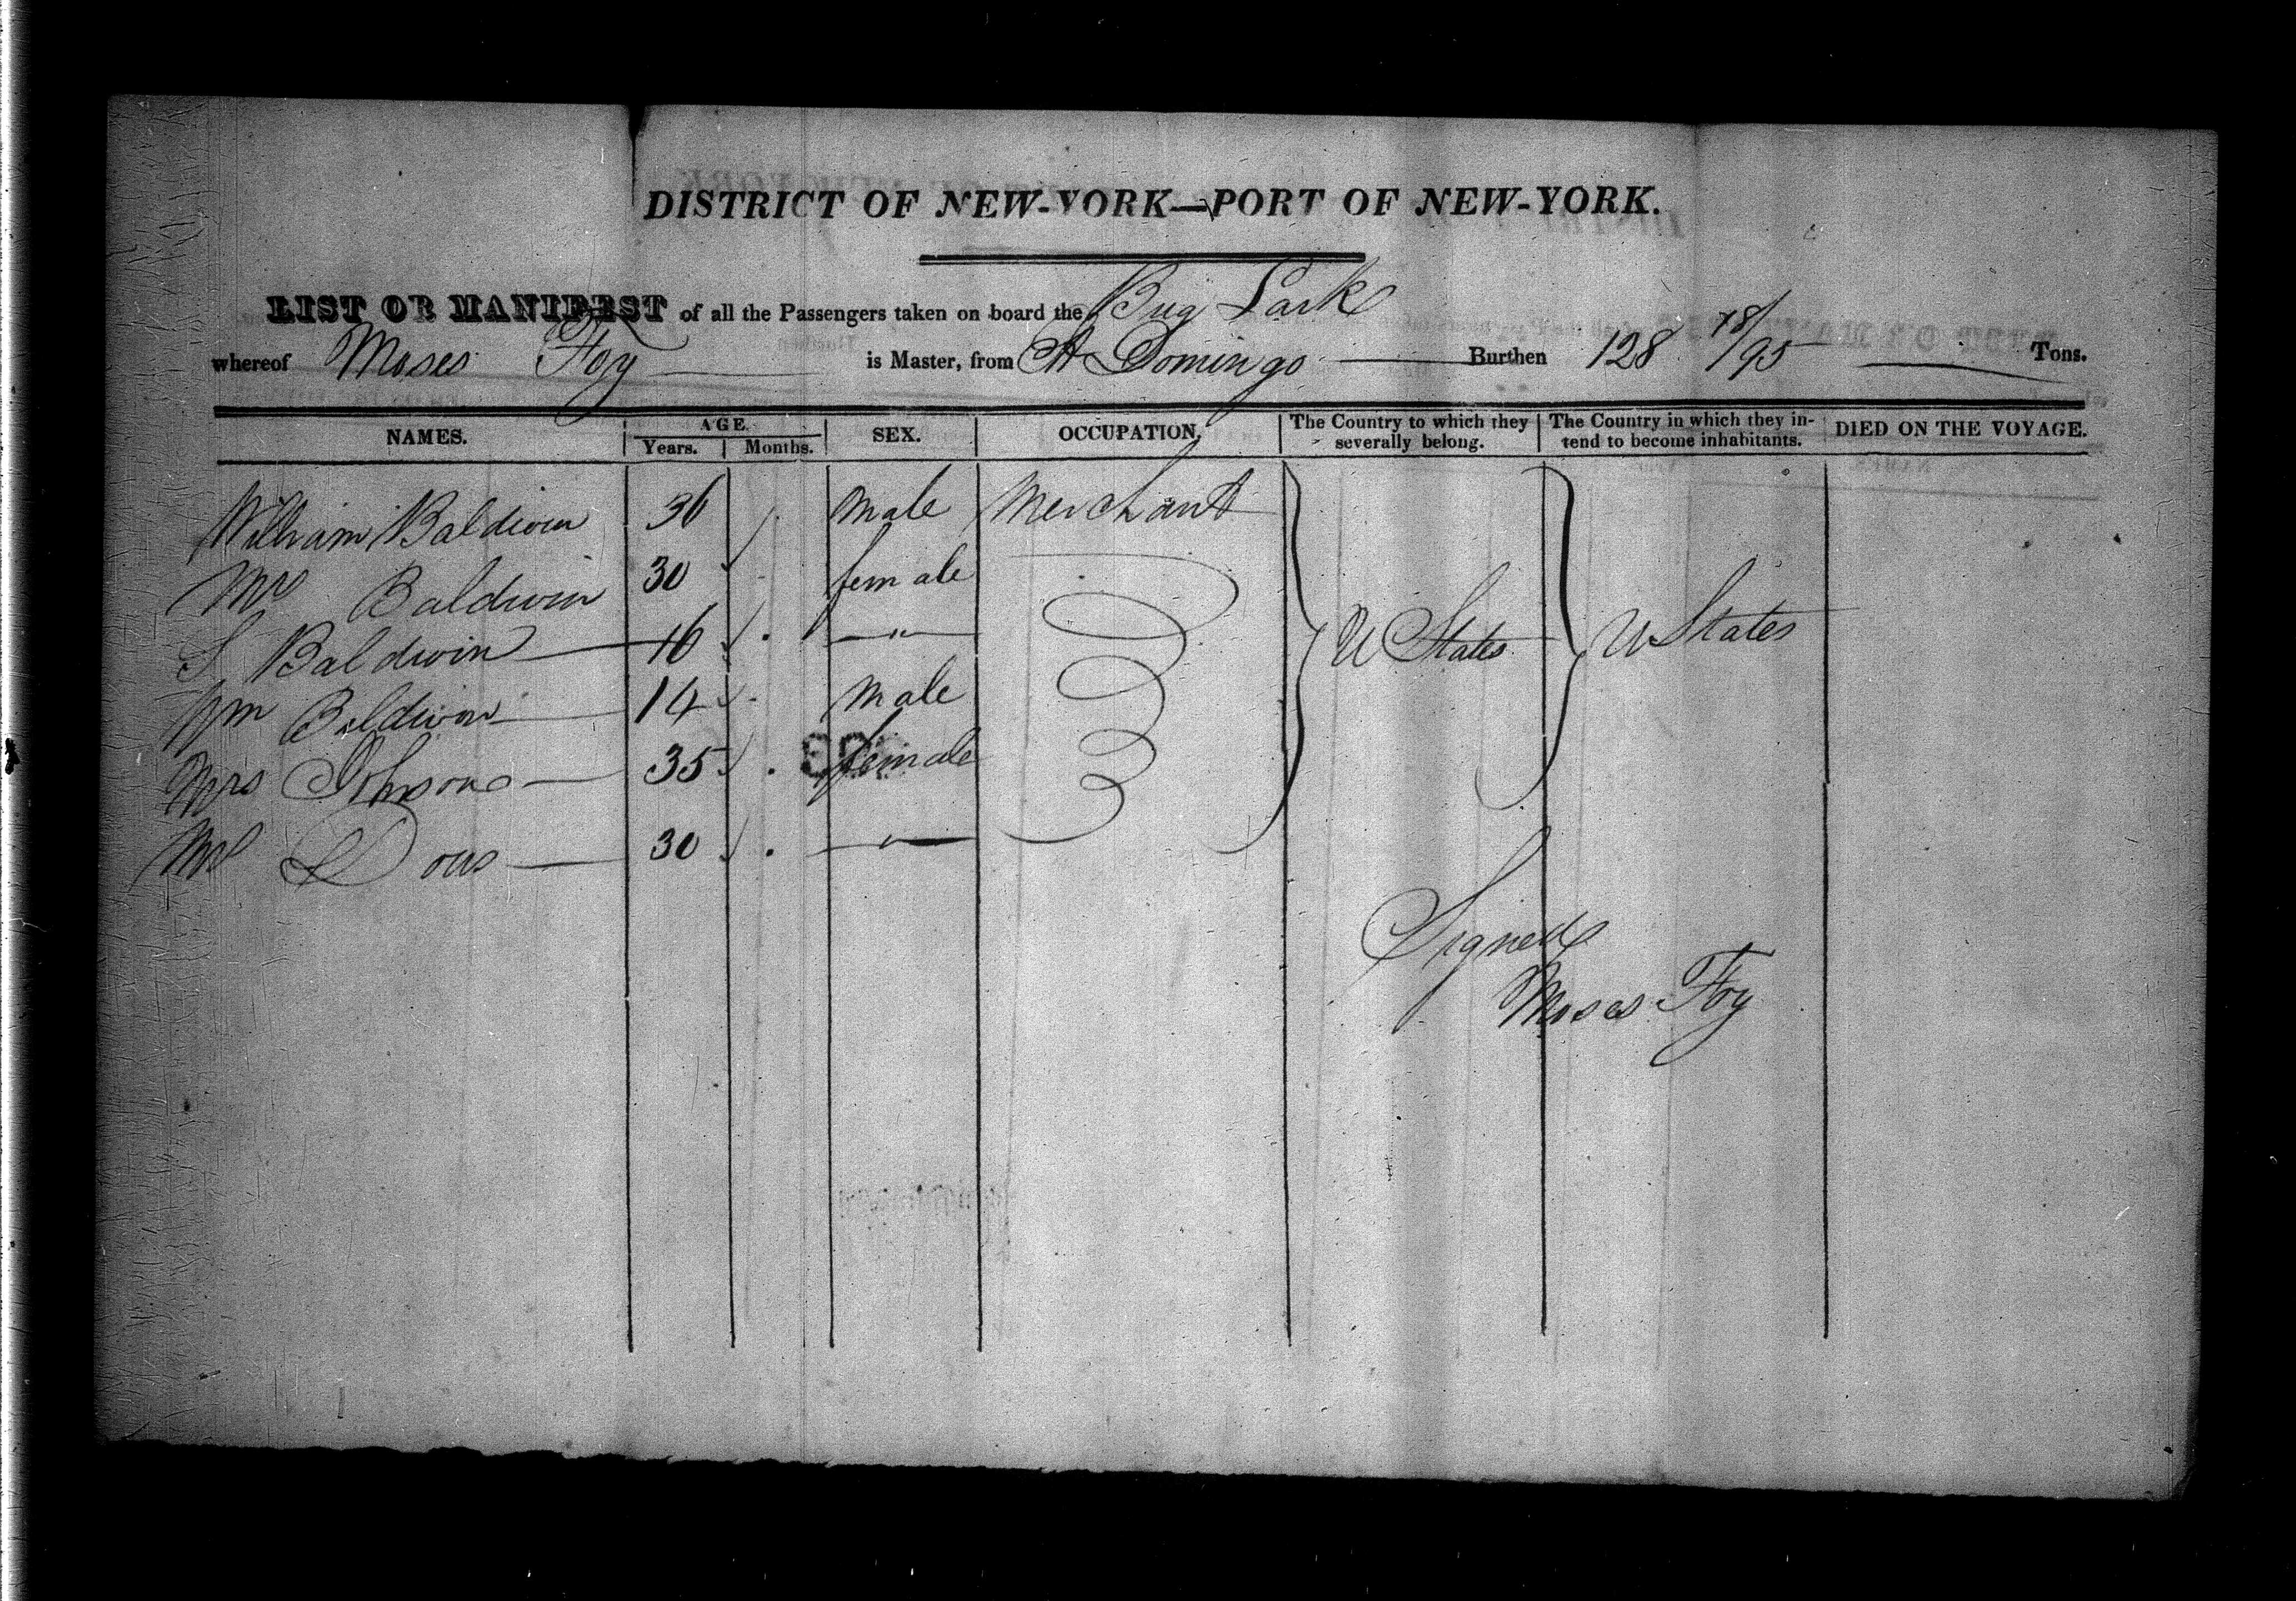 DISTRICT OF NEW-YORK—PORT OF NEW-YORK.
LIST OR MANIFEST of all the Passengers taken on board the Brig Lark
whereof Moses Foy is Master, from St Domingo Burthen 128 78/95 Tons.
NAMES. AGE. Years. Months. SEX. OCCUPATION. The Country to which they severally belong. The Country in which they intend to become inhabitants. DIED ON THE VOYAGE.
William Baldwin 36 male Merchant
Mrs Baldwin 30 female
S Baldwin 16 "
Wm Baldwin 14 male
U States U States
Mrs Johnson 35 female
Mrs 30 "
Signed
Moses Foy